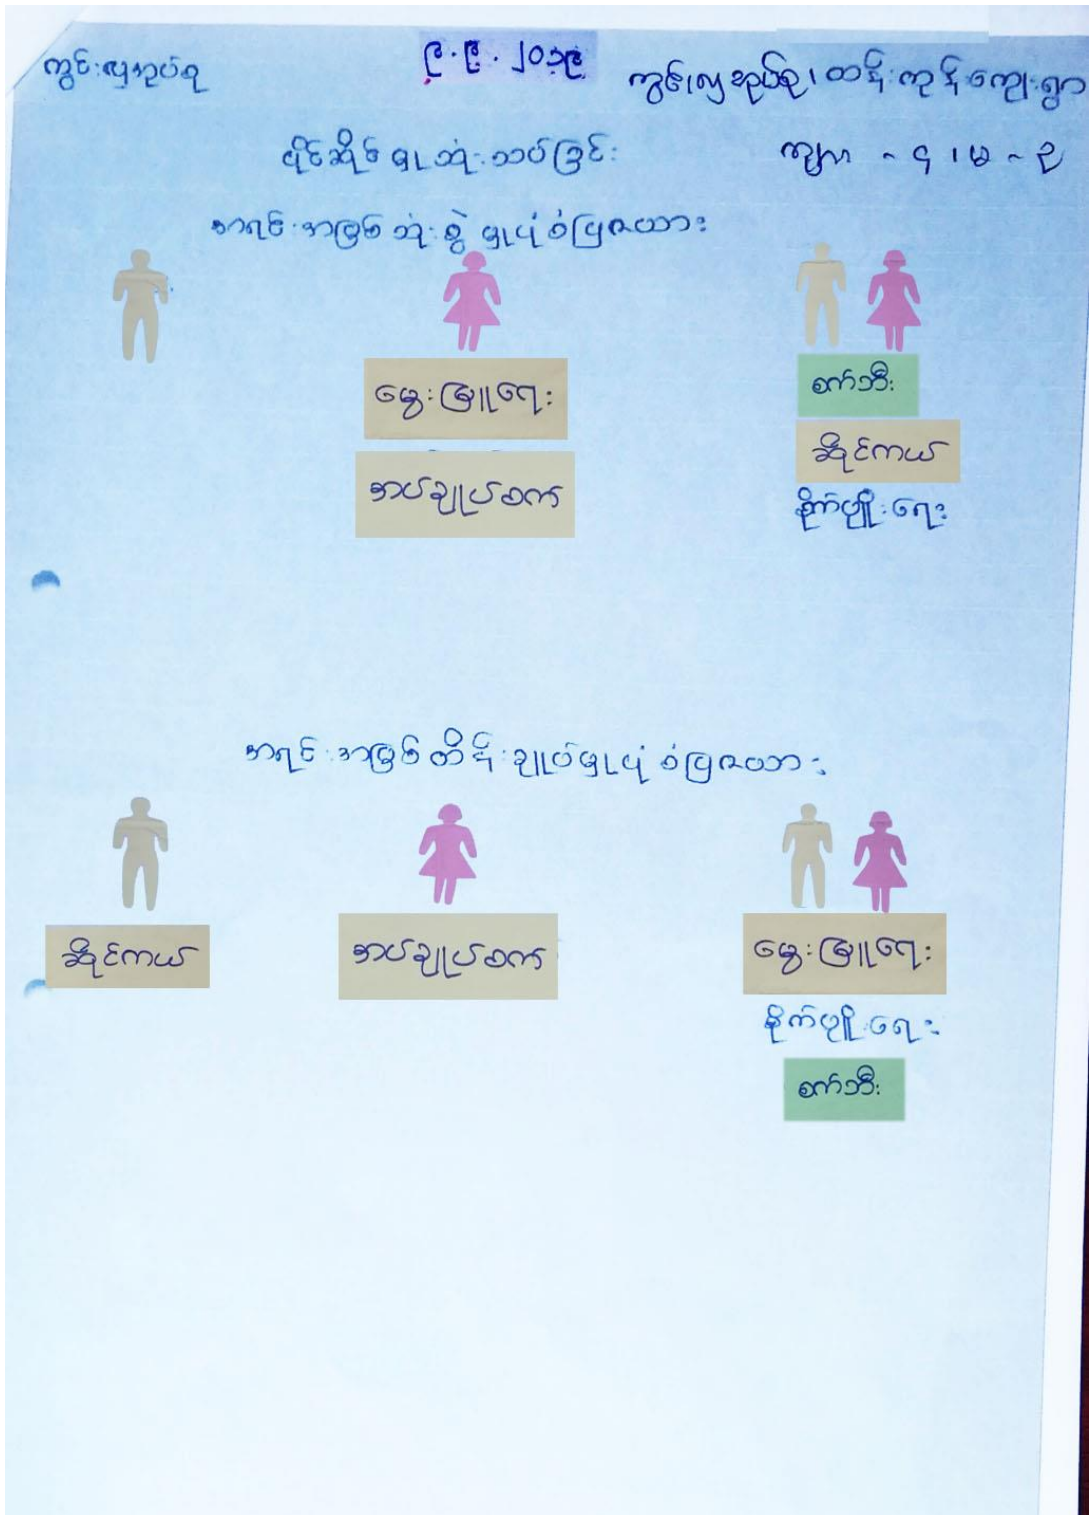 ကွင်းလှအုပ်စု
၉.၉.၂၀၁၉
ကွင်းလှအုပ်စု၊ တန်းကုန်းကျေးရွာ
ပိုင်ဆိုင်မှုသုံးသပ်ခြင်း
ကျား - ၄ ၊ မ - ၃
အရင်းအမြစ်သုံးစွဲမှုပုံစံပြဇယား
မွေးမြူရေး
စက်ဘီး
ဆိုင်ကယ်
အပ်ချုပ်စက်
စိုက်ပျိုးရေး
အရင်းအမြစ်ထိန်းချုပ်မှုပုံစံပြဇယား
ဆိုင်ကယ်
အပ်ချုပ်စက်
မွေးမြူရေး
စိုက်ပျိုးရေး
စက်ဘီး